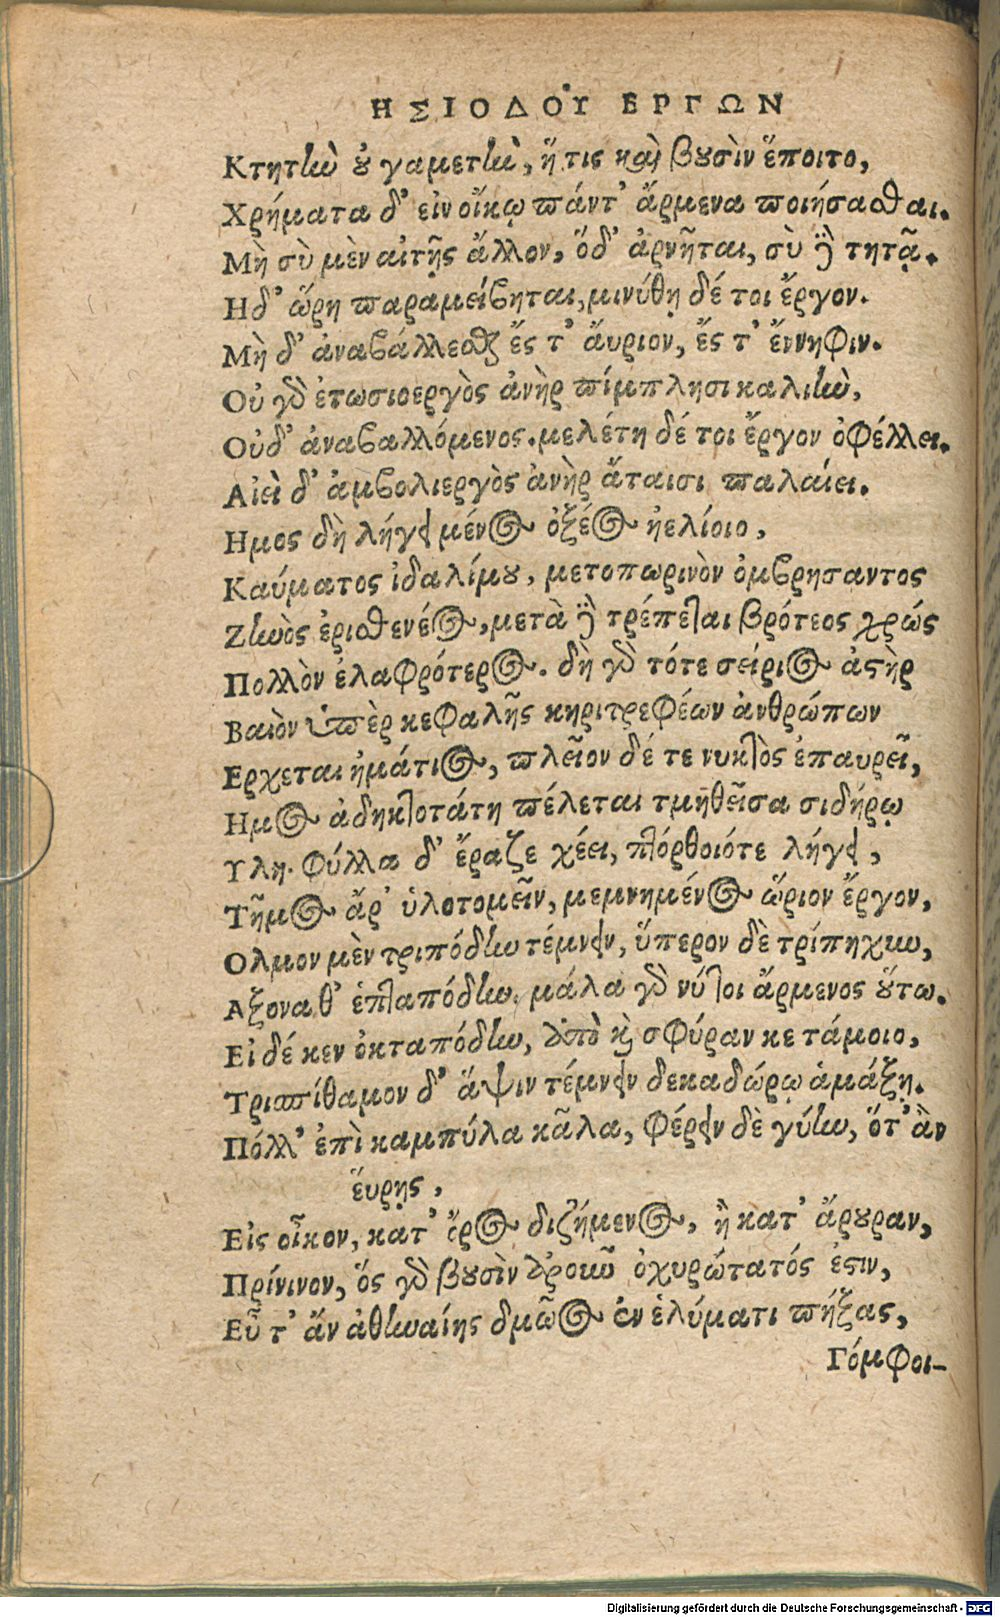 ΗΣΙΟΔΟΥ ΕΡΓΩΝ
Κτητὴν οὐ γαμετὴν, ἥ τις καὶ βουσὶν ἕποιτο,
Χρήματα δ' εἰν οἴκῳ πάντ' ἄρμενα ποιήσασθαι.
Μὴ σὺ μὲν αἰτῇς ἄλλον, ὅδ' ἀρνῆται, σὺ δὲ τητᾷ.
Ηδ' ὥρη παραμείβηται, μινύθῃ δέ τοι ἔργον.
Μὴ δ' ἀναβάλλεσθαι ἔς τ' ἄυριον, ἔς τ' ἔννηφιν.
Οὐ γὰρ ἐτωσιοεργὸς ἀνὴρ πίμπλησι καλιὴν,
Οὐδ' ἀναβαλλόμενος. μελέτη δέ τοι ἔργον ὀφέλλει.
Αἰεὶ δ' ἀμβολιεργὸς ἀνὴρ ἄταισι παλαίει.
Ημος δὴ λήγει μένος ὀξέος ἠελίοιο,
Καύματος ἰδαλίμου, μετοπωρινὸν ὀμβρησαντος
Ζηνὸς ἐρισθενέος, μετὰ δὲ τρέπεται βρότεος χρώς
Πολλὸν ἐλαφρότερος. δὴ γὰρ τότε σείριος ἀστὴρ
Βαιὸν ὑπὲρ κεφαλῆς κηριτρεφέων ἀνθρώπων
Ερχεται ἠμάτιος, πλεῖον δέ τε νυκτὸς ἐπαυρεῖ,
Ημος ἀδηκτοτάτη πέλεται τμηθεῖσα σιδήρῳ
Υλη. φύλλα δ' ἔραζε χέει, πτόρθοιότε λήγει,
Τῆμος ἄρ' ὑλοτομεῖν, μεμνημένος ὥριον ἔργον,
Ολμον μὲν τριπόδην τέμνειν, ὕπερον δὲ τρίπηχυν,
Αξονα θ' ἑπταπόδην. μάλα γὰρ νύτοι ἄρμενος οὕτω.
Εἰ δέ κεν ὀκταπόδην, ἀπὸ καὶ σφύραν κε τάμοιο,
Τρισπίθαμον δ' ἄψιν τέμνειν δεκαδώρῳ ἁμάξῃ.
Πόλλ' ἐπὶ καμπύλα κᾶλα, φέρειν δὲ γύην, ὅτ' ἂν
ἕυρῃς,
Εἰς οἶκον, κατ' ὄρος διζήμενος, ἢ κατ' ἄρουραν,
Πρίνινον, ὅς γὰρ βουσὶν ἀροῦν ὀχυρώτατός ἐστιν,
Εὖ τ' ἄν ἀθηναίης δμῶος ἐν ἐλύματι πήξας,
Γόμφοι-
Digitalisierung gefördert durch die Deutsche Forschungsgemeinschaft - DFG